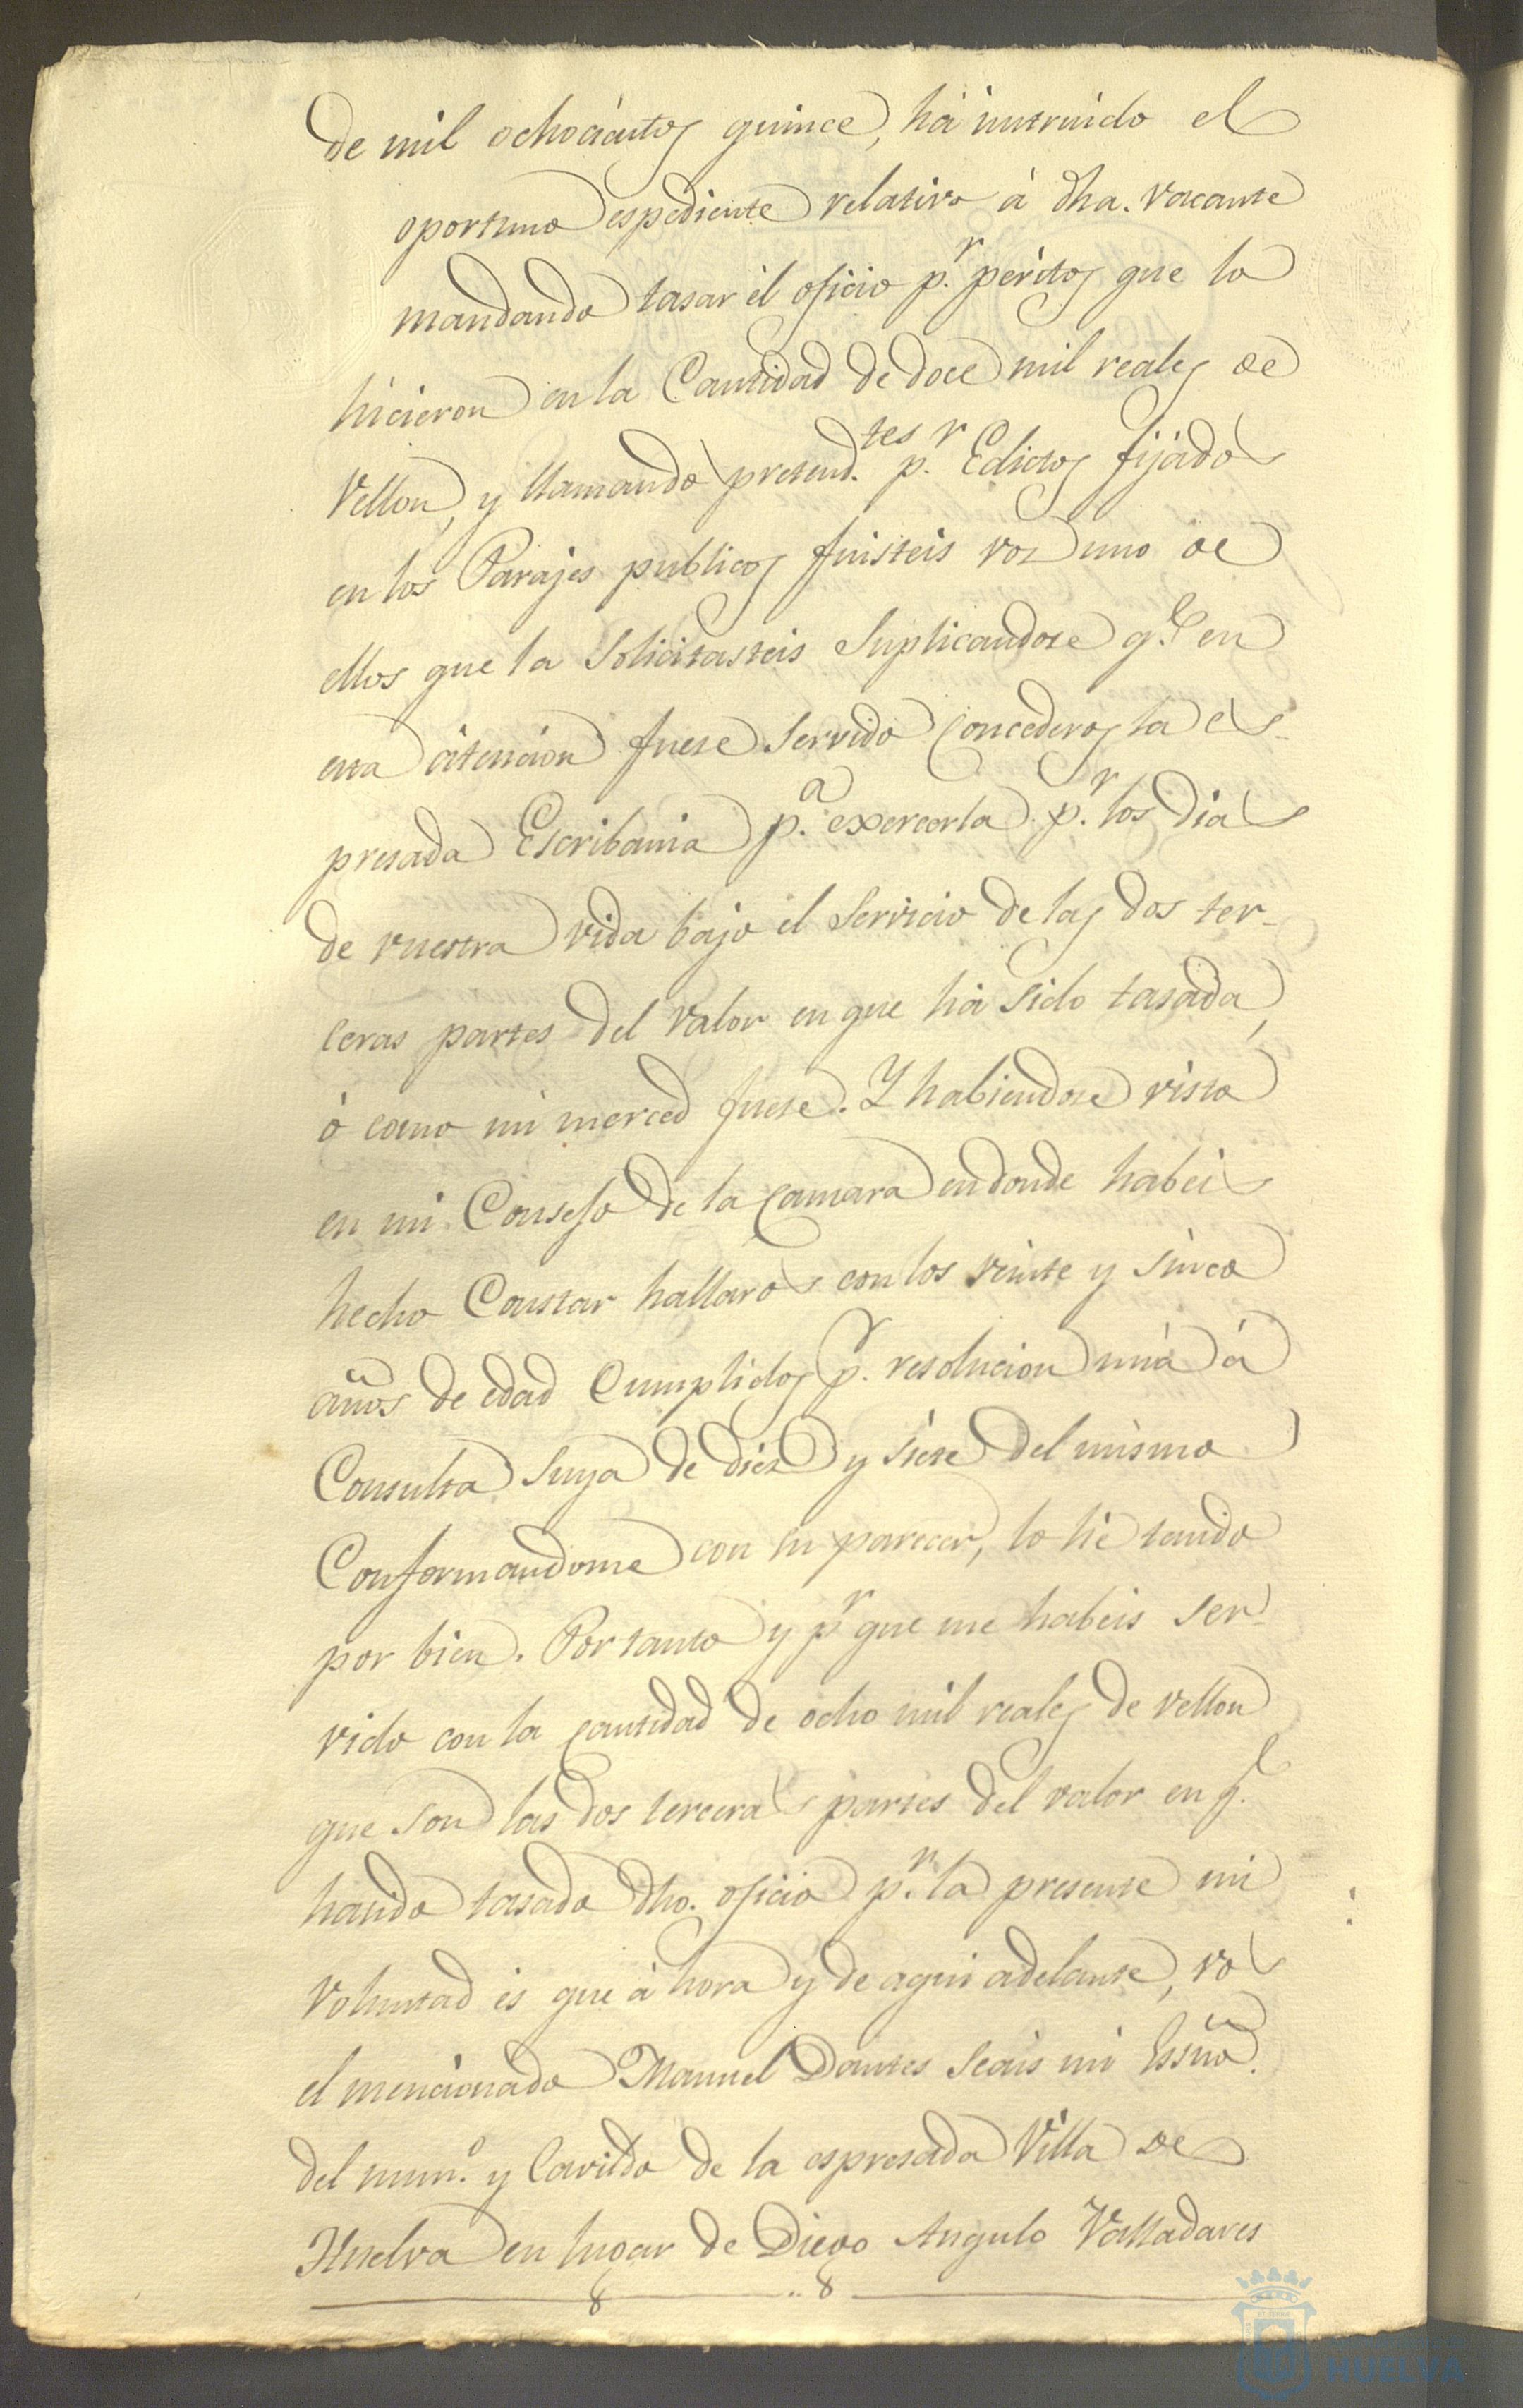 de mil ochocientos quince, há instruido el
oportuno espediente relativo à dha. vacante
mandando tasar él oficio p.r peritos que lo
hicieron en la Cantidad de doce mil reales de
Vellon, y llamando pretend.tes p.r Edictos fijados
en los Parajes publicos fuisteis vos uno de
ellos que la Solicitasteis Suplicandose q.e en
esta atencion fuese Servido Concederos la es-
presada Escribania p.a exercerla p.r los dias
de vuestra vida bajo el Servicio de las dos ter-
ceras partes del valor en que há sido tasada,
ò como mi merced fuese. Y habiendose visto
en mi Consejo de la Camara en donde habeis
hecho Constar hallaros con los veinte y sinco
años de edad Cumplidos p.r resolucion mia á
Consulta Suya de diez y siete del mismo
Conformandome con su parecer, lo hé tenido
por bien. Por tanto y p.r que me habeis ser-
vido con la Cantidad de ocho mil reales de vellon
que son las dos terceras partes del valor en q.e
há sido tasado dho. oficio p.r la presente mi
Voluntad es que à hora y de aqui adelante, vos
el mencionado Manuel Dantes Seais mi Essño.
del num.o y Cavildo de la espresada Villa de
Huelva en lugar de Diego Angulo Valladares
HUELVA